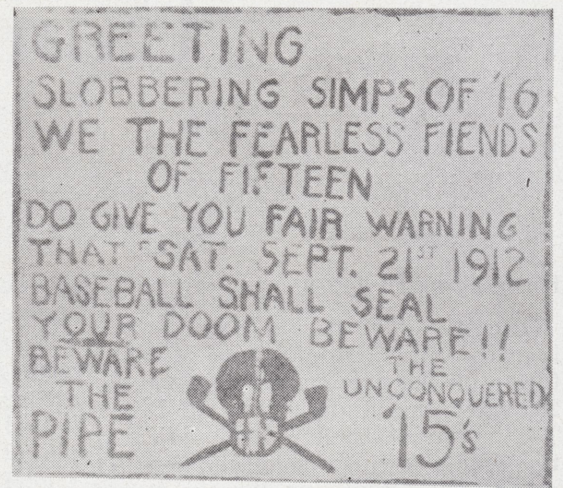 GREETING
SLOBBERING SIMPS OF '16
WE THE FEARLESS FIENDS
OF FIFTEEN
DO GIVE YOU FAIR WARNING
THAT SAT. SEPT. 21ST 1912
BASEBALL SHALL SEAL
YOUR DOOM BEWARE!!
BEWARE
THE
PIPE
THE
UNCONQUERED
'15's